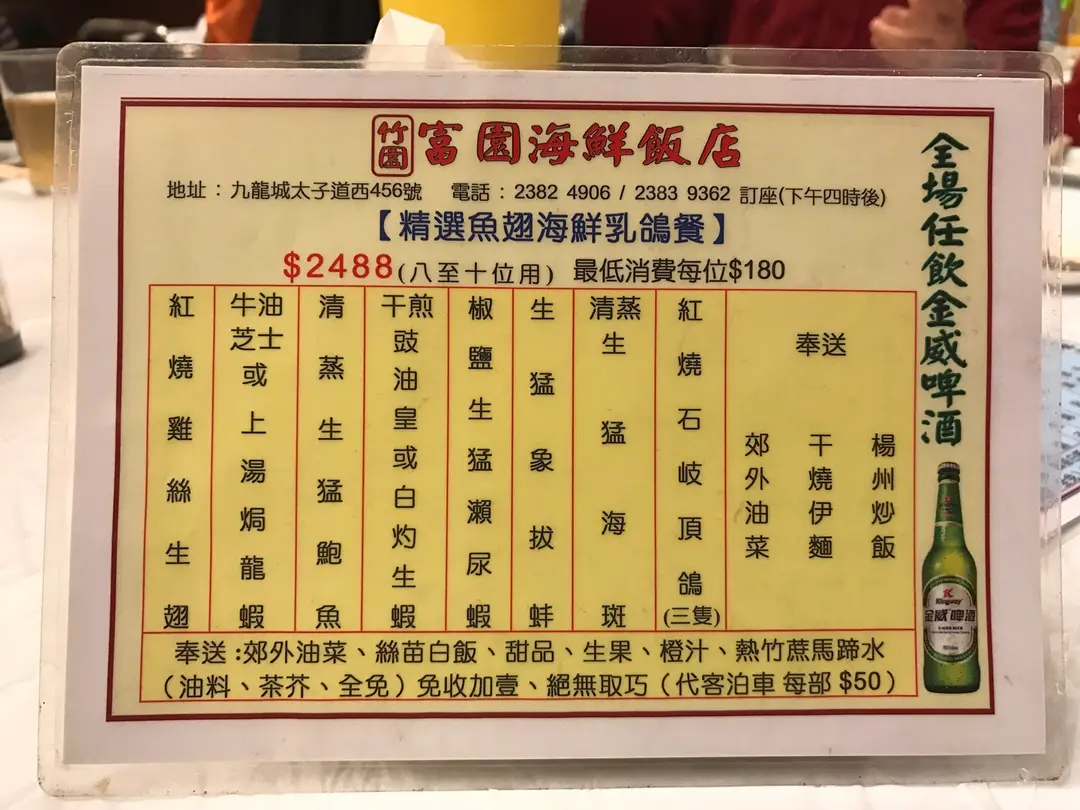 竹園 富園海鮮飯店
地址：九龍城太子道西456號 電話：2382 4906 / 2383 9362 訂座(下午四時後)
【精選魚翅海鮮乳鴿餐】
$2488(八至十位用) 最低消費每位$180
紅燒雞絲生翅
牛油芝士或上湯焗龍蝦
清蒸生猛鮑魚
干煎豉油皇或白灼生蝦
椒鹽生猛瀨尿蝦
生猛象拔蚌
清蒸生猛海斑
紅燒石岐頂鴿(三隻)
奉送
郊外油菜
干燒伊麵
楊州炒飯
奉送:郊外油菜、絲苗白飯、甜品、生果、橙汁、熱竹蔗馬蹄水
(油料、茶芥、全免)免收加壹、絕無取巧(代客泊車 每部 $50)
全場任飲金威啤酒
Kingway
金威啤酒